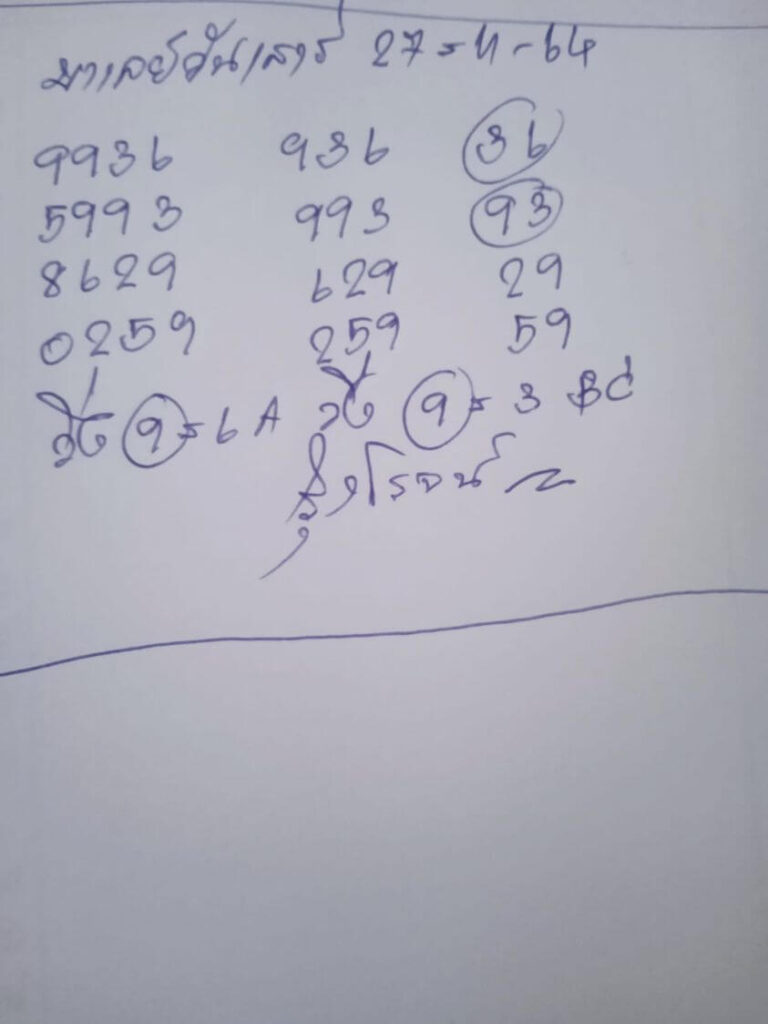 มาเลย์วันเสาร์ 27-11-64
9936 936 36
5993 993 93
8629 629 29
0259 259 59
วิ่ง 9=6 A วิ่ง 9=3 BC
รุ่งโรจน์